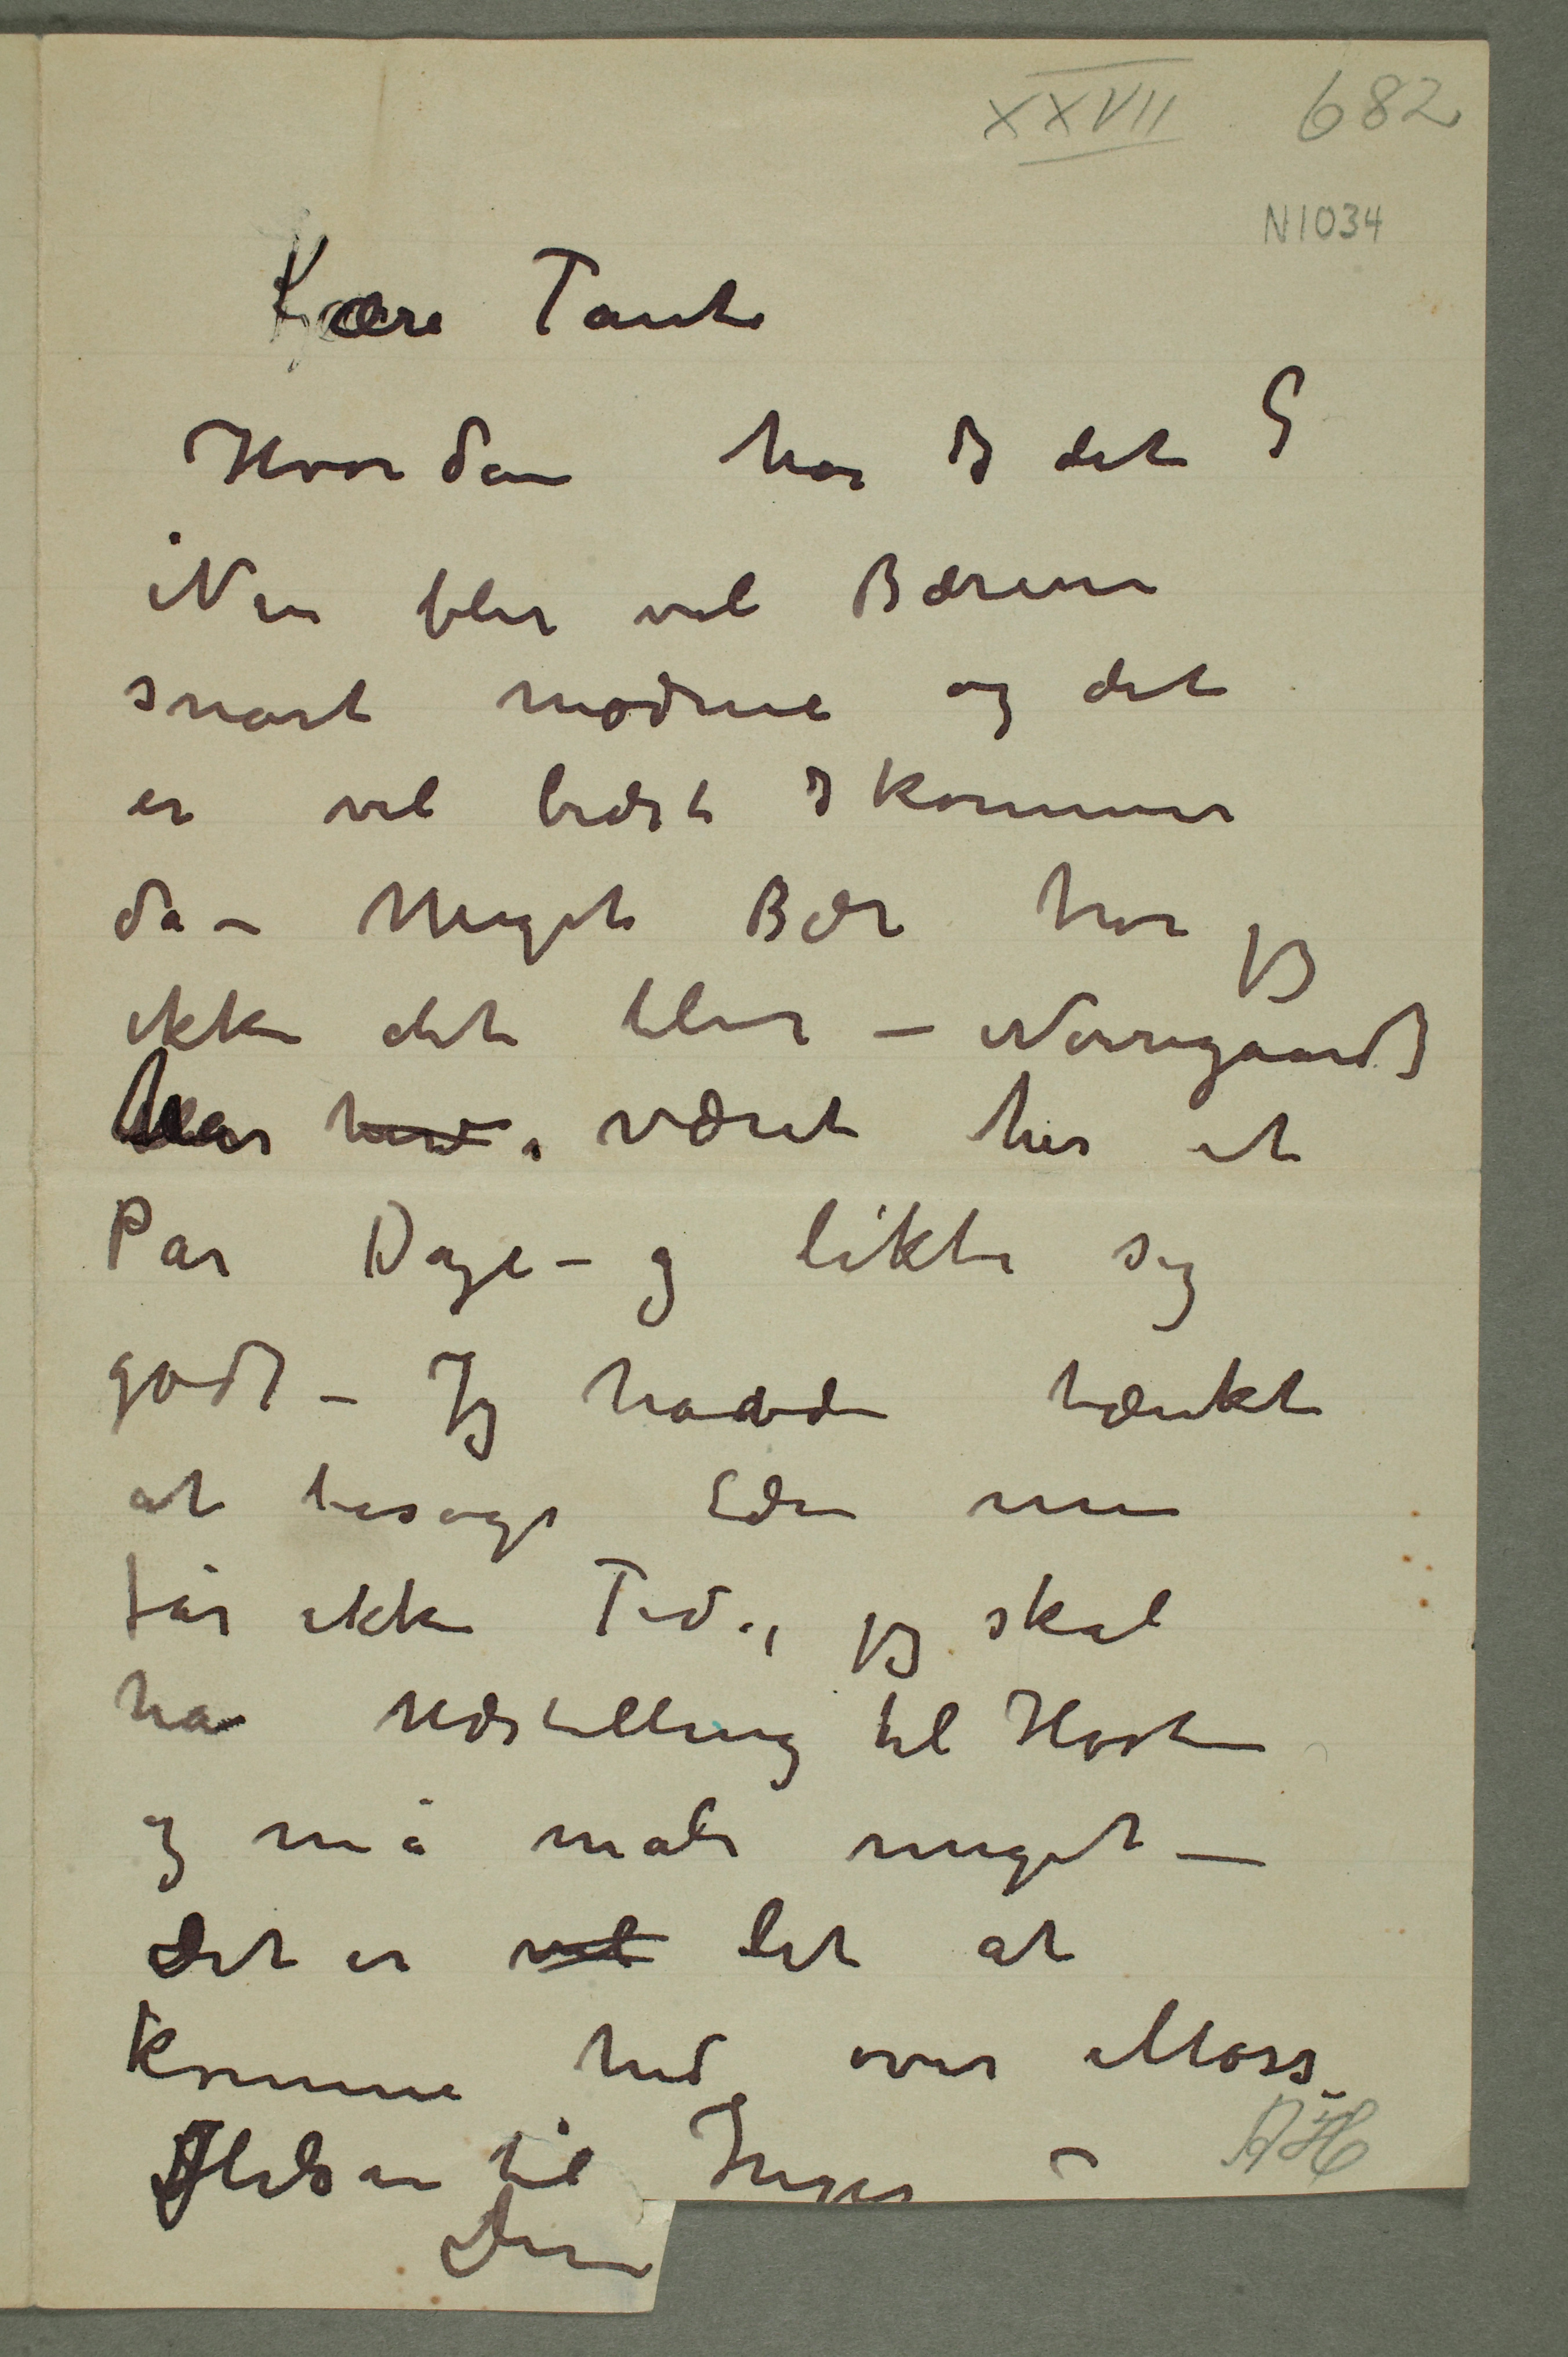 XXVII 682
N1034
Kjære Tante
Hvordan har I det ?
Nu blir vel Bærene
snart modne og det
er vel bedst I kommer
da – Meget Bær tror jeg
ikke det blir – Nørregaards
har havt været her et
Par Dage – og likte sig
godt – Jeg havde tænkt
at besøge Eder men
får ikke Tid., jeg skal
ha Udstilling til Høsten
og må male meget –
Det er vel let at
komme hid over Moss –
Hilsen til Inger –
Din